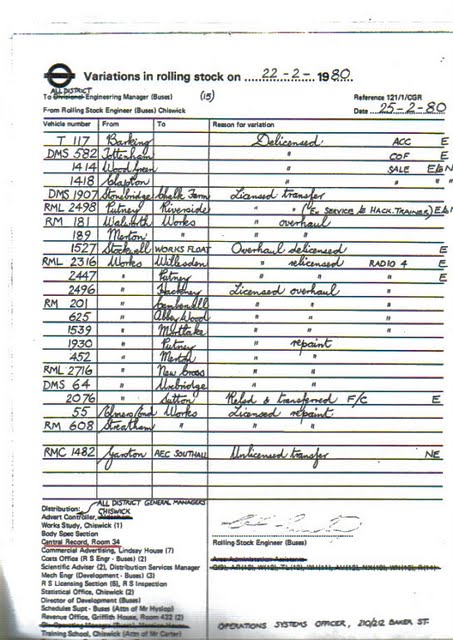 Variations in rolling stock on 22-2-1980
ALL DISTRICT
To Divisional Engineering Manager (Buses) (15) Reference 121/1/CGR
From Rolling Stock Engineer (Buses) Chiswick Date 25-2-80
Vehicle number From To Reason for variation
T 117 Barking Delicensed ACC E
DMS 582 Tottenham " COF E
1414 Wood Green " SALE E/GN
1418 Clapton " " " "
DMS 1907 Stonebridge Chalk Farm Licensed transfer
RML 2498 Putney Riverside " " (Ex SERVICE to HACK.TRAINER) E/GN
RM 181 Walworth Works " overhaul
189 Merton " " "
1527 Stockwell WORKS FLOAT Overhaul delicensed E
RML 2316 Works Willesden " relicensed RADIO 4 E
2447 " Putney " " E
2496 " Hackney Licensed overhaul
RM 201 " Camberwell " "
625 " Abbey Wood " "
1539 " Mortlake " "
1930 " Putney " repaint
452 " Merton " "
RML 2716 " New Cross " "
DMS 64 " Uxbridge " "
2076 " Sutton Reled & transferred F/C E
55 Elmers End Works Licensed repaint
RM 608 Streatham " " "
RMC 1482 Garston AEC SOUTHALL Unlicensed transfer NE
ALL DISTRICT GENERAL MANAGERS
Distribution: CHISWICK
Advert Controller,
Works Study, Chiswick (1)
Body Spec Section
Central Record, Room 34
Commercial Advertising, Lindsay House (7)
Costs Office (R S Engr - Buses)
Scientific Adviser (2), Distribution Services Manager
Mech Engr (Development - Buses) (3)
R S Licensing Section (5), R S Inspection
Statistical Office, Chiswick (2)
Director of Development (Buses)
Schedules Supt - Buses (Attn of Mr Hyslop)
Revenue Office, Griffith House, Room 432 (2)
Training School, Chiswick (Attn of Mr Carter)
Rolling Stock Engineer (Buses)
Area Administration Assistants
OPERATIONS SYSTEMS OFFICER, 210/212 BAKER ST.